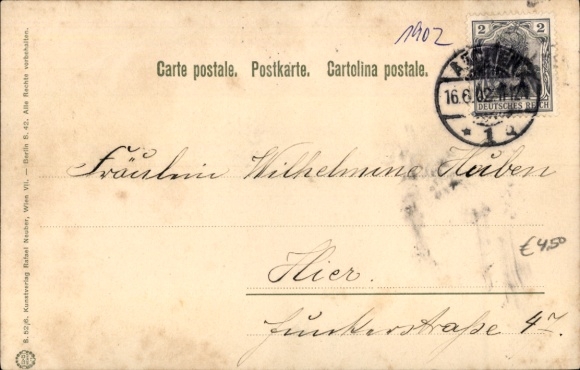 1902
2 2
DEUTSCHES REICH
AACHEN
16.6.02
* 1 q
Carte postale. Postkarte. Cartolina postale.
Fräulein Wilhelmine Huben
Hier.
Junkerstraße 47.
€ 4,50
B. 52/6. Kunstverlag Rafael Neuber, Wien VII. — Berlin S. 42. Alle Rechte vorbehalten.